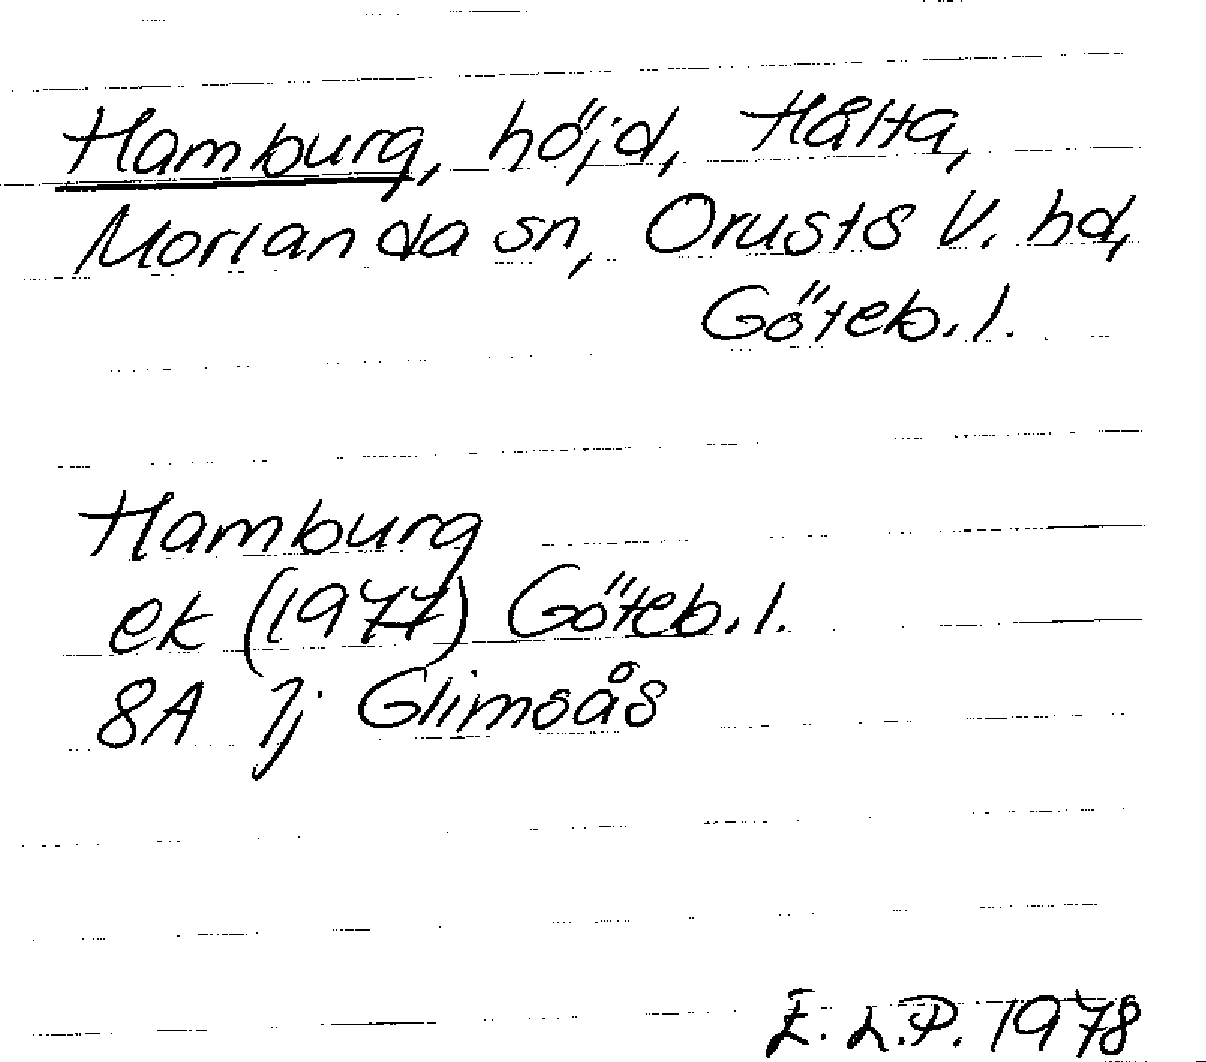 Hamburg, höjd, Hålta,
Morlanda sn, Orusts V. hd,
Göteb. l.
Hamburg
ek (1977) Göteb. l.
8A 7j Glimsås
E. L.P. 1978